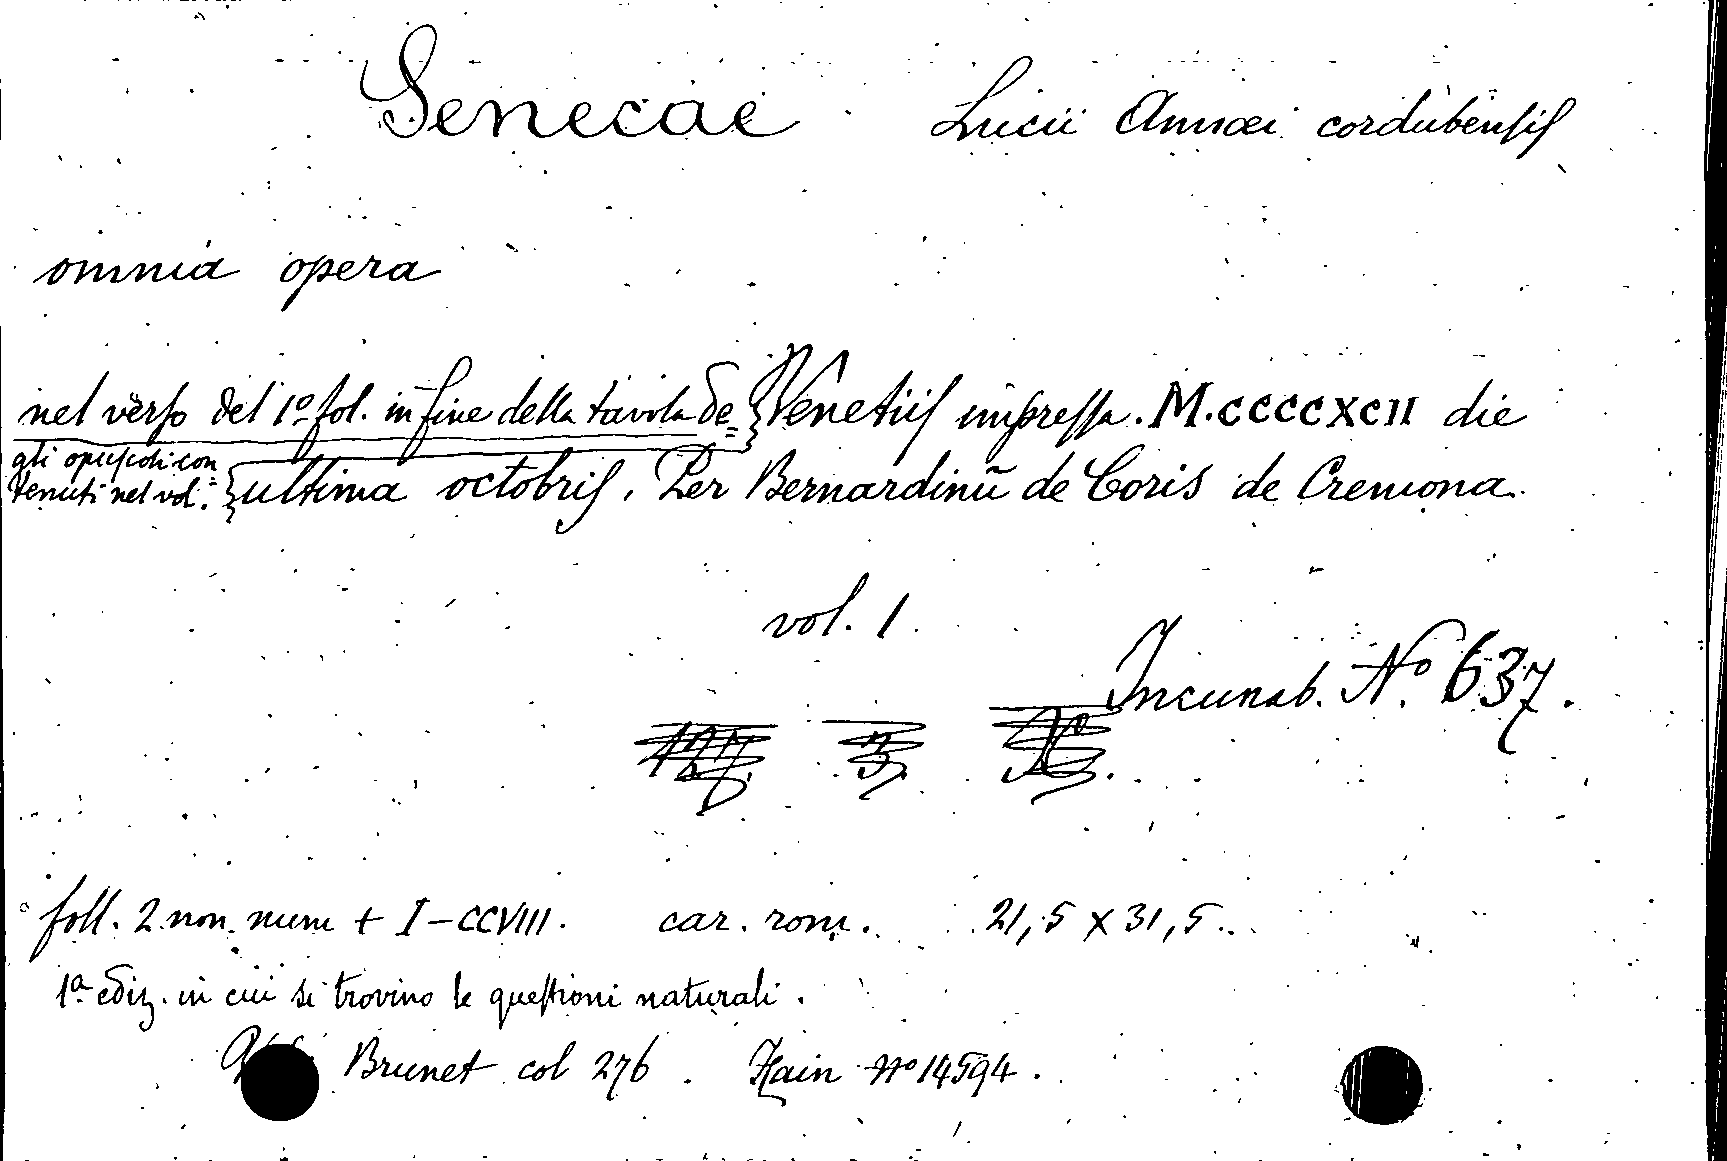 Senecae Lucii Annaei cordubensis
omnia opera
nel verso del 1º fol. in fine della tavola de= } Venetiis impressa. M.CCCCXCII die
gli opuscoli con=
tenuti nel vol. } ultima octobris. Per Bernardinũ de Coris de Cremona.
vol. 1
Incunab. Nº 637.
foll. 2 non num + I-CCVIII. car. rom. 21,5 x 31,5.
1ª ediz. in cui si trovino le questioni naturali.
Brunet col 276. Hain Nº 14594.